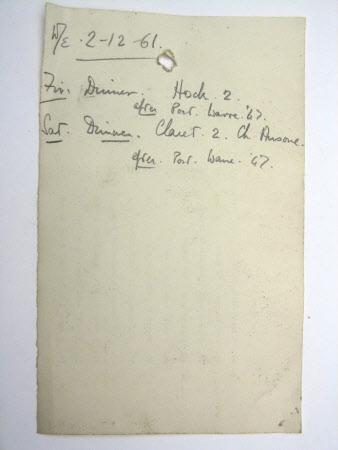 W/E . 2-12-61.
Fri. Dinner. Hock. 2.
after Port. Warre '47.
Sat. Dinner. Claret. 2. Ch Ausone.
after. Port. Warre. '47.